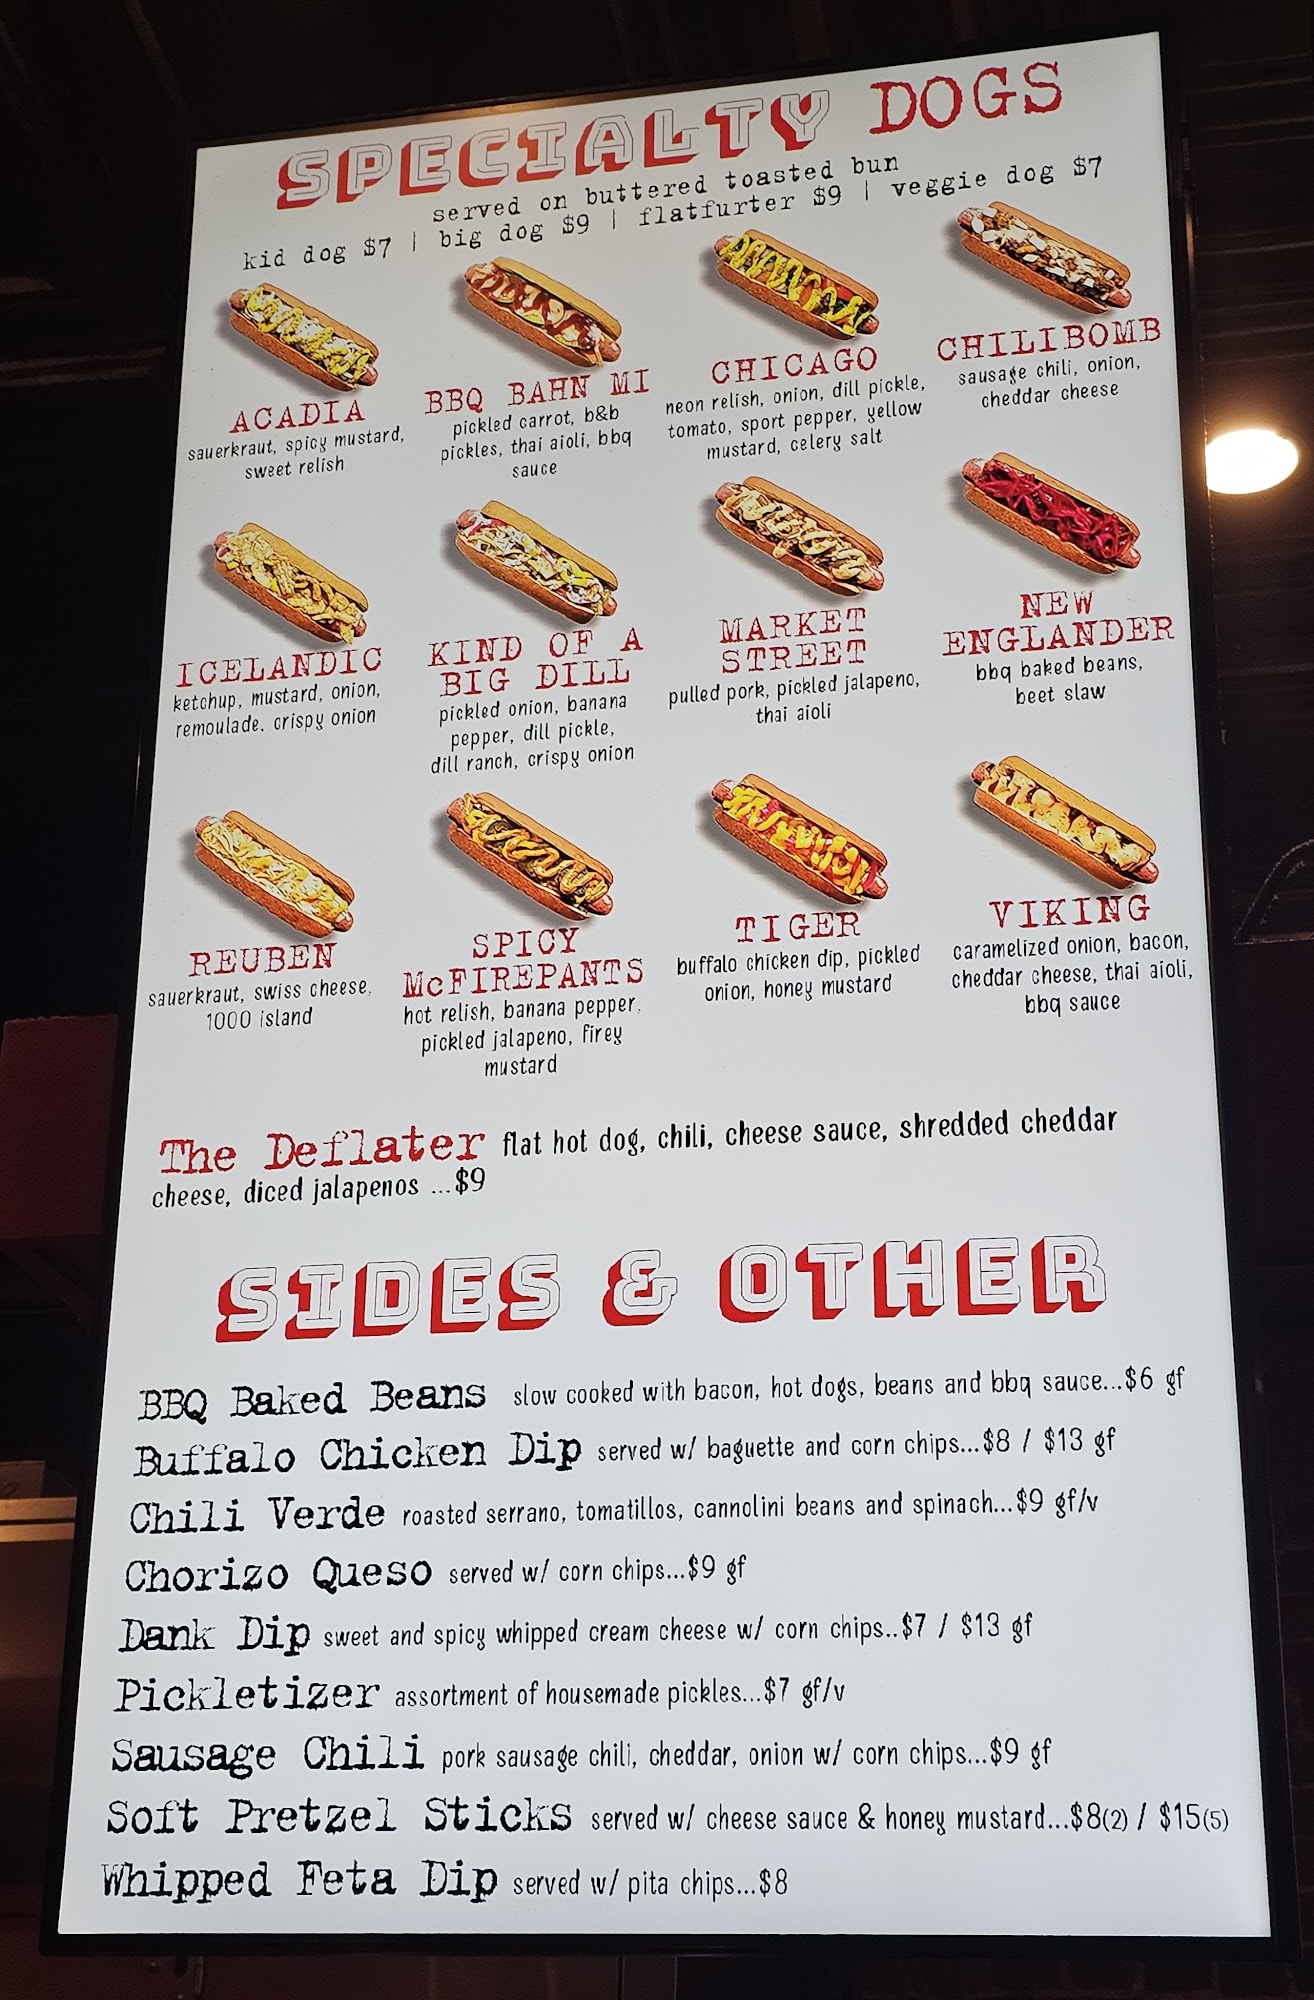 SPECIALTY DOGS
served on buttered toasted bun
kid dog $7 | big dog $9 | flatfurter $9 | veggie dog $7
ACADIA
sauerkraut, spicy mustard,
sweet relish
BBQ BAHN MI
pickled carrot, b&b
pickles, thai aioli, bbq
sauce
CHICAGO
neon relish, onion, dill pickle,
tomato, sport pepper, yellow
mustard, celery salt
CHILIBOMB
sausage chili, onion,
cheddar cheese
ICELANDIC
ketchup, mustard, onion,
remoulade. crispy onion
KIND OF A
BIG DILL
pickled onion, banana
pepper, dill pickle,
dill ranch, crispy onion
MARKET
STREET
pulled pork, pickled jalapeno,
thai aioli
NEW
ENGLANDER
bbq baked beans,
beet slaw
REUBEN
sauerkraut, swiss cheese,
1000 island
SPICY
McFIREPANTS
hot relish, banana pepper,
pickled jalapeno, firey
mustard
TIGER
buffalo chicken dip, pickled
onion, honey mustard
VIKING
caramelized onion, bacon,
cheddar cheese, thai aioli,
bbq sauce
The Deflater flat hot dog, chili, cheese sauce, shredded cheddar
cheese, diced jalapenos ...$9
SIDES & OTHER
BBQ Baked Beans slow cooked with bacon, hot dogs, beans and bbq sauce...$6 gf
Buffalo Chicken Dip served w/ baguette and corn chips...$8 / $13 gf
Chili Verde roasted serrano, tomatillos, cannolini beans and spinach...$9 gf/v
Chorizo Queso served w/ corn chips...$9 gf
Dank Dip sweet and spicy whipped cream cheese w/ corn chips..$7 / $13 gf
Pickletizer assortment of housemade pickles...$7 gf/v
Sausage Chili pork sausage chili, cheddar, onion w/ corn chips...$9 gf
Soft Pretzel Sticks served w/ cheese sauce & honey mustard...$8(2) / $15(5)
Whipped Feta Dip served w/ pita chips...$8